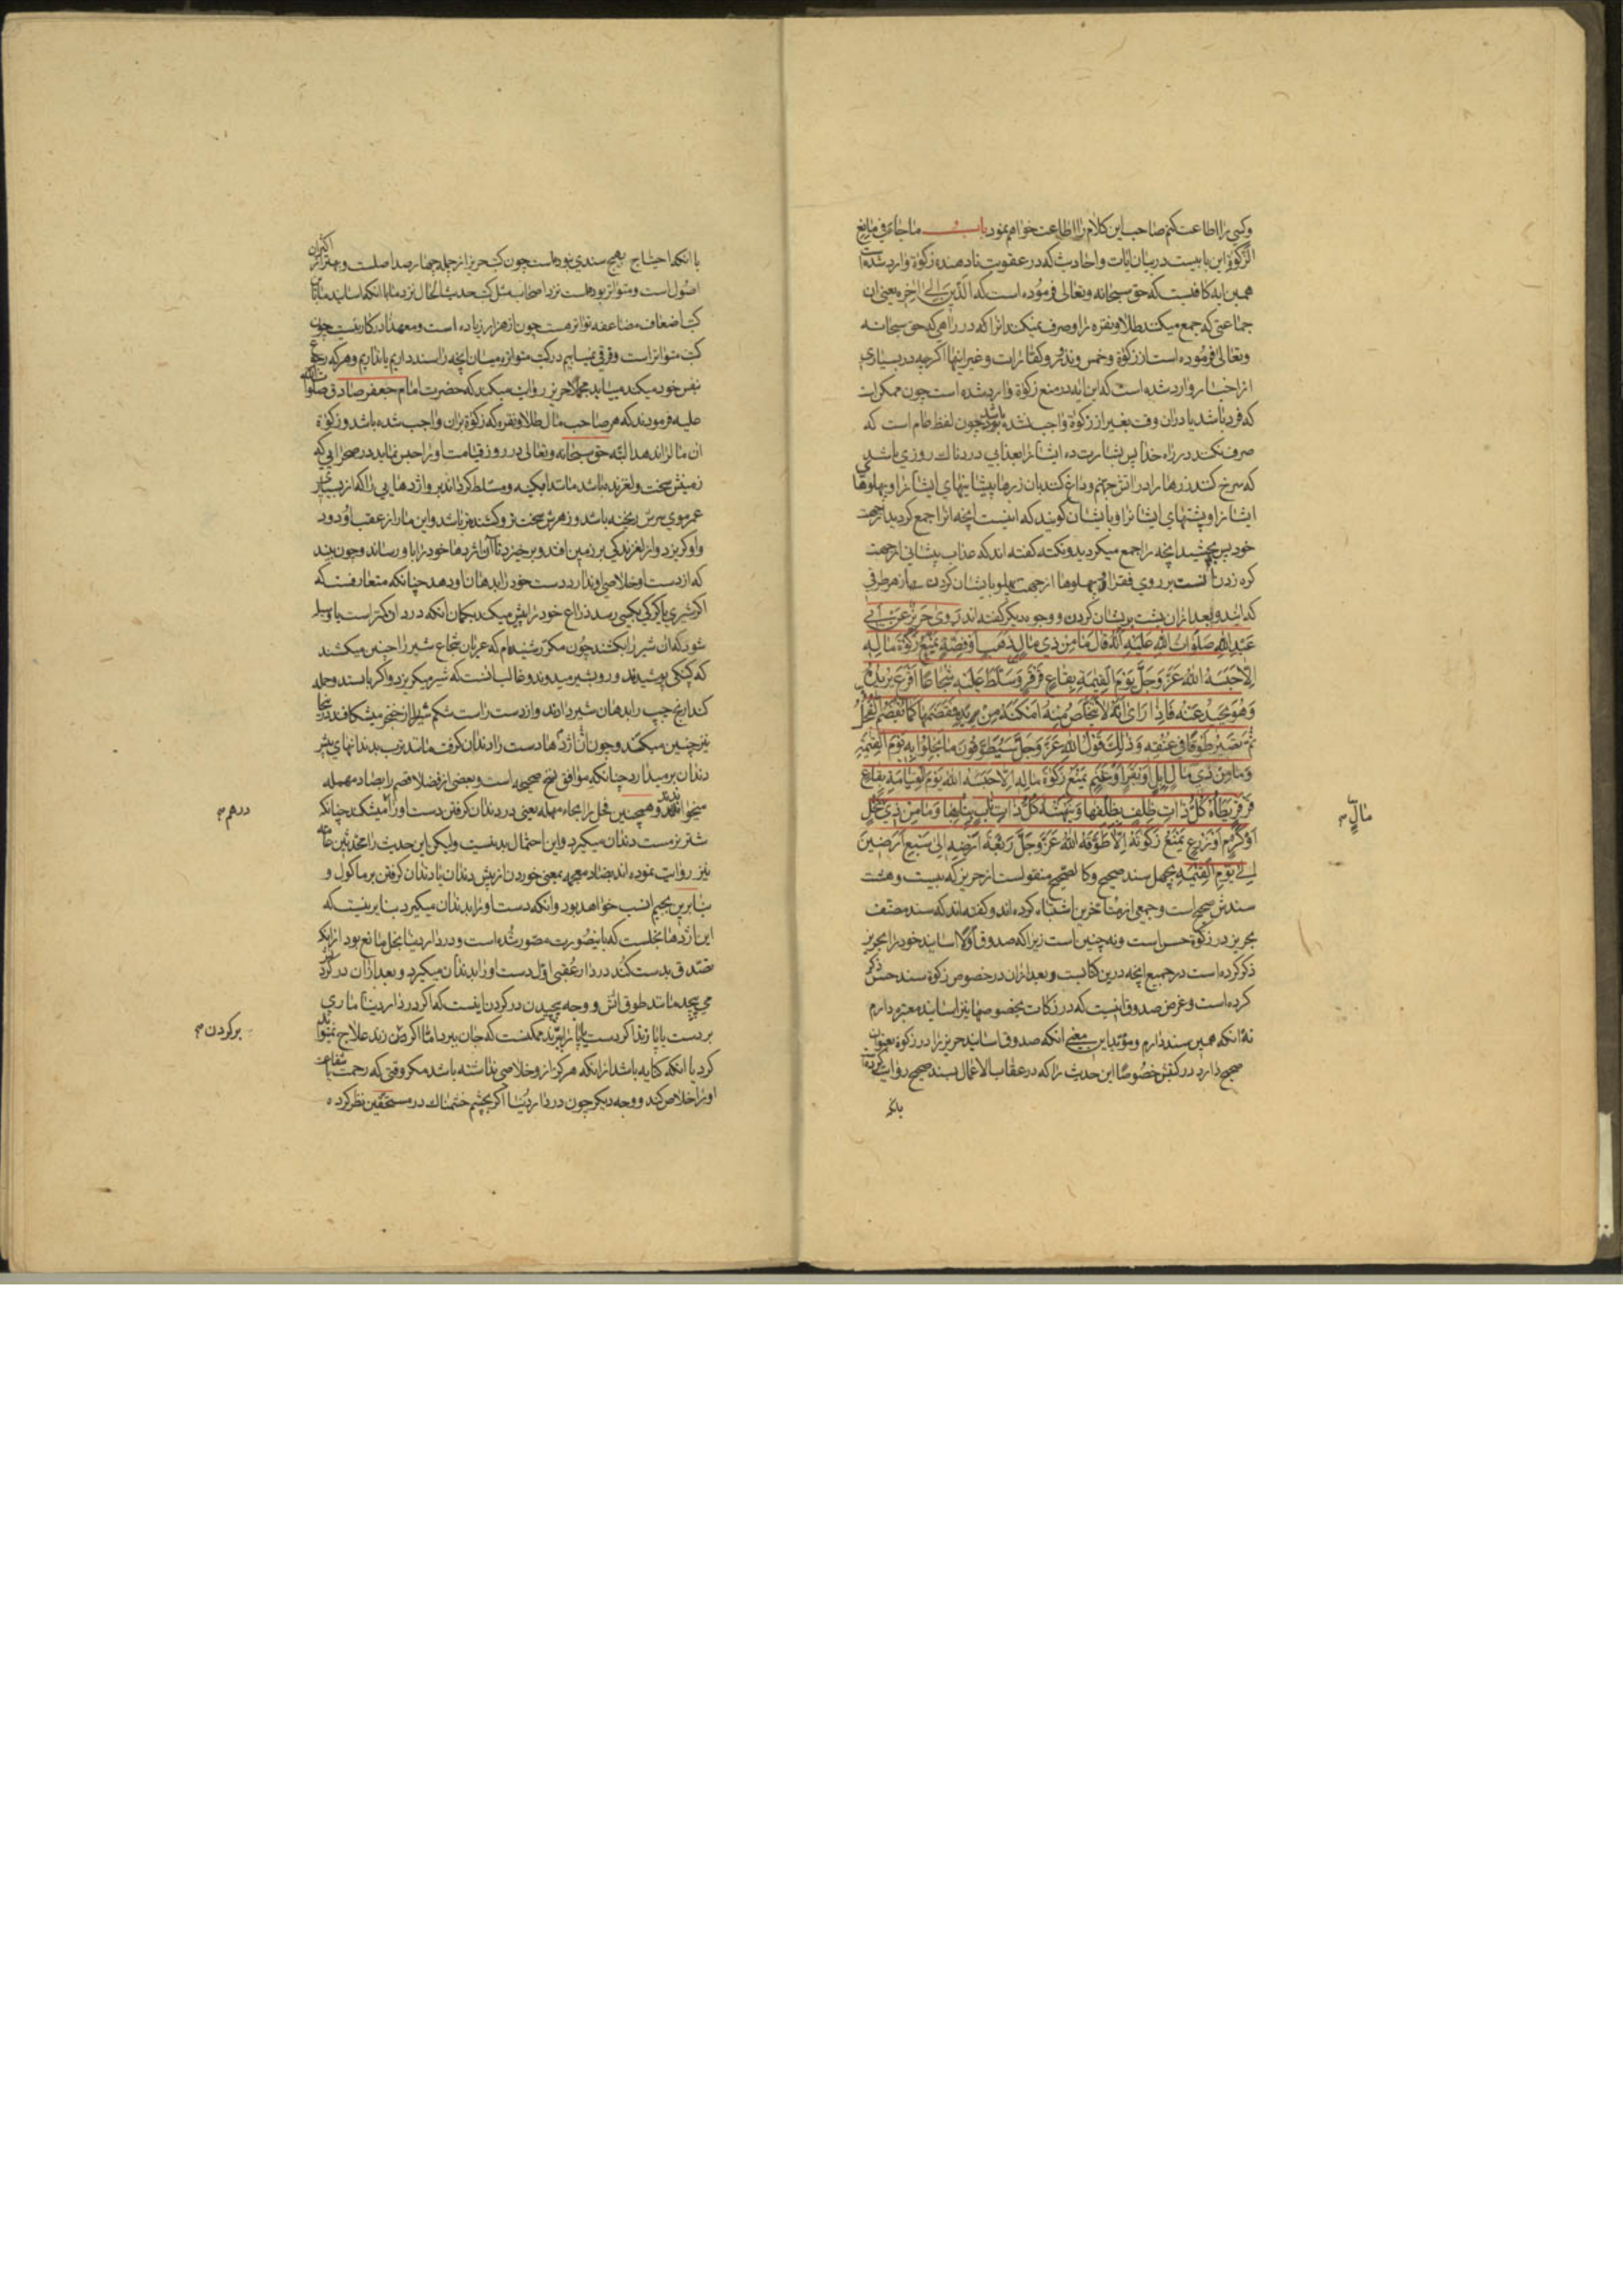 وکسی را اطاعت کنم صاحب این کلام را اطاعت خواهم نمود باب ما جاء فی مانع
الزکوة این بابیست در بیان ایات واحادیث که در عقوبت نادهنده زکوة وارد شده است
همین ایه کافیست که حق سبحانه وتعالی فرموده است که الذین الی اخره یعنی ان
جماعتی که جمع میکنند طلا ونقره را وصرف نمیکنند انرا که در راهی که حق سبحانه
وتعالی فرموده است از زکوة وخمس ونذر وکفارات وغیر اینها اکرچه در بسیاری
از اخبار وارد شده است که این ایه در منع زکوة وارد شده است چون ممکن است
که فرد باشد یا در ان وقت بغیر از زکوة واجب نشده بوده باشد چون لفظ عام است که
صرف نکند در راه خدا پس بشارت ده ایشانرا بعذابی دردناك روزی باشد
که سرخ کنند زرها را در اتش جهنم وداغ کنند بان زرها پیشانیهای ایشانرا وپهلوهای
ایشانرا وپشتهای ایشانرا وبایشان کویند که اینست انچه انرا جمع کردید از جهت
خود پس بچشید انچه را جمع میکردید ونکته کفته اند که عذاب پیشانی از جهت
کره زدن انست بر روی فقرا وپهلوها از جهت پهلو بایشان کردن از هر طرفی
که ایند وبعد ازان پشت بریشان کردن ووجوه دیکر کفته اند روی حریز عن ابی
عبد الله صلوات الله علیه انه قال ما من ذی مال ذهب او فضة یمنع زکوة ماله
الا حبسه الله عز وجل یوم القیمة بقاع قرقر وسلط علیه شجاعا اقرع یریده
وهو یحید عنه فاذا رای انه لا یتخلص منه امکنه من یده فقضمها کما یقضم الفجل
ثم یصیر طوقا فی عنقه وذلك قول الله عز وجل سیطوقون ما بخلوا به یوم القیمة
وما من ذی مال ابل او بقر او غنم یمنع زکوة ماله الا حبسه الله یوم القیامة بقاع
قرقر یطأه کل ذات ظلف بظلفها وینهشه کل ذات ناب بنابها وما من ذی نخل
مال
او کرم او زرع یمنع زکوته الا طوقه الله عز وجل ریعة ارضه الی سبع ارضین
الی یوم القیمة بچهل سند صحیح وکالصحیح منقولست از حریز که بیست وهشت
سندش صحیح است وجمعی از متاخرین اشتباه کرده اند وکفته اند که سند مصنف
بحریز در زکوة حسن است ونه چنین است زیرا که صدوق اولا اسانید خود را بحریز
ذکر کرده است در جمیع انچه درین کتابست وبعد ازان در خصوص زکوة سند حسن ذکر
کرده است وغرض صدوق اینست که در زکات بخصوصها نیز اسانید معتبره دارم
نه انکه همین سند دارم ومؤید این معنی انکه صدوق اسانید حریز را در زکوة بعنوان
صحیح دارد در کتبش خصوصا این حدیث را که در عقاب الاعمال بسند صحیح روایت کرده است
با انکه احتیاج بهیچ سندی نبوده است چون کتب حریز از جمله چهار صد اصلست وبهتر از اکثران
اصول است ومتواتر بوده است نزد اصحاب مثل کتب حدیث الحال نزد ما با انکه اسانید ما باین
کتب اضعاف مضاعفه تواتر هست چون از هزار زیاده است ومعهذا در کار نیست چون
کتب متواتر است وفرقی نمییابیم در کتب متواتره میان انچه را سند داریم یا نداریم وهر که رجوع
بنفس خود میکند مییابد مجملا حریز روایت میکند که حضرت امام جعفر صادق صلوات الله
علیه فرمودند که هر صاحب مال طلا ونقره که زکوة بران واجب شده باشد وزکوة
ان مال را ندهد البته حق سبحانه وتعالی در روز قیامت او را حبس نماید در صحرایی که
زمینش سخت ولغزنده باشد مانند ابکینه ومسلط کرداند بر او اژدهایی را که از بسیاری
عمر موی سرش ریخته باشد وزهرش سخت تر وکشنده تر باشد واین مار از عقب او دود
واو کریزد واز لغزندکی بر زمین افتد وبرخیزد تا ان اژدها خود را باو رساند وچون بیند
که از دست او خلاصی ندارد دست خود را بدهان او دهد چنانکه متعارفست که
اکر شیری یا کرکی بکسی رسد ذراع خود را پیش میکند بکمان انکه درد ان کمتر است یا وسیله
شود که ان شیر را بکشند چون مکرر شنیده ام که عربان شجاع شیر را چنین میکشند
که کپنکی پوشیده اند ورو بشیر میدوند وغالب انست که شیر میکریزد واکر بایستد وحمله
کند ارنج چپ را بدهان شیر دارند واز دست راست شکم شیر را از خنجر میشکافند در اینجا
نیز چنین میکند وچون ان اژدها دست را دندان کرفت مانند ترب بدندانهای پیش
دندان بر میدارد چنانکه موافق نسخ صحیحه است وبعضی از فضلا قضم را بصاد مهمله
میخوانند وهمچنین فجل را بحاء مهمله یعنی در دندان کرفتن دست او را میشکند چنانکه
درهم
شتر نر مست دندان میکیرد واین احتمال بد نیست ولیکن این حدیث را محدثین عامه
نیز روایت نموده اند بضاد معجمه بمعنی خوردن از پیش دندان یا دندان کرفتن بر ماکول و
بنابرین بجیم انسب خواهد بود وانکه دست او را بدندان میکیرد بنا برینست که
این اژدها بخلست که باینصورت مصور شده است ودر دار دنیا بخل مانع بود از انکه
تصدق بدست کند در دار عقبی اول دست او را بدندان میکیرد وبعد ازان در کردنش
می پیچد مانند طوق اتش ووجه پیچیدن در کردن اینست که اکر در دار دنیا ماری
بر دست یا پا زند اکر دست یا پا را ببرند ممکنست که جان ببرد اما اکر کردن زند علاج نمیتواند
بر کردن
کرد یا انکه کنایه باشد از انکه هرکز ازو خلاصی نداشته باشد مکر وقتی که رحمت یا شفاعت
او را خلاص کند ووجه دیکر چون در دار دنیا اکر بچشم خشمناك در مستحقین نظر کرده